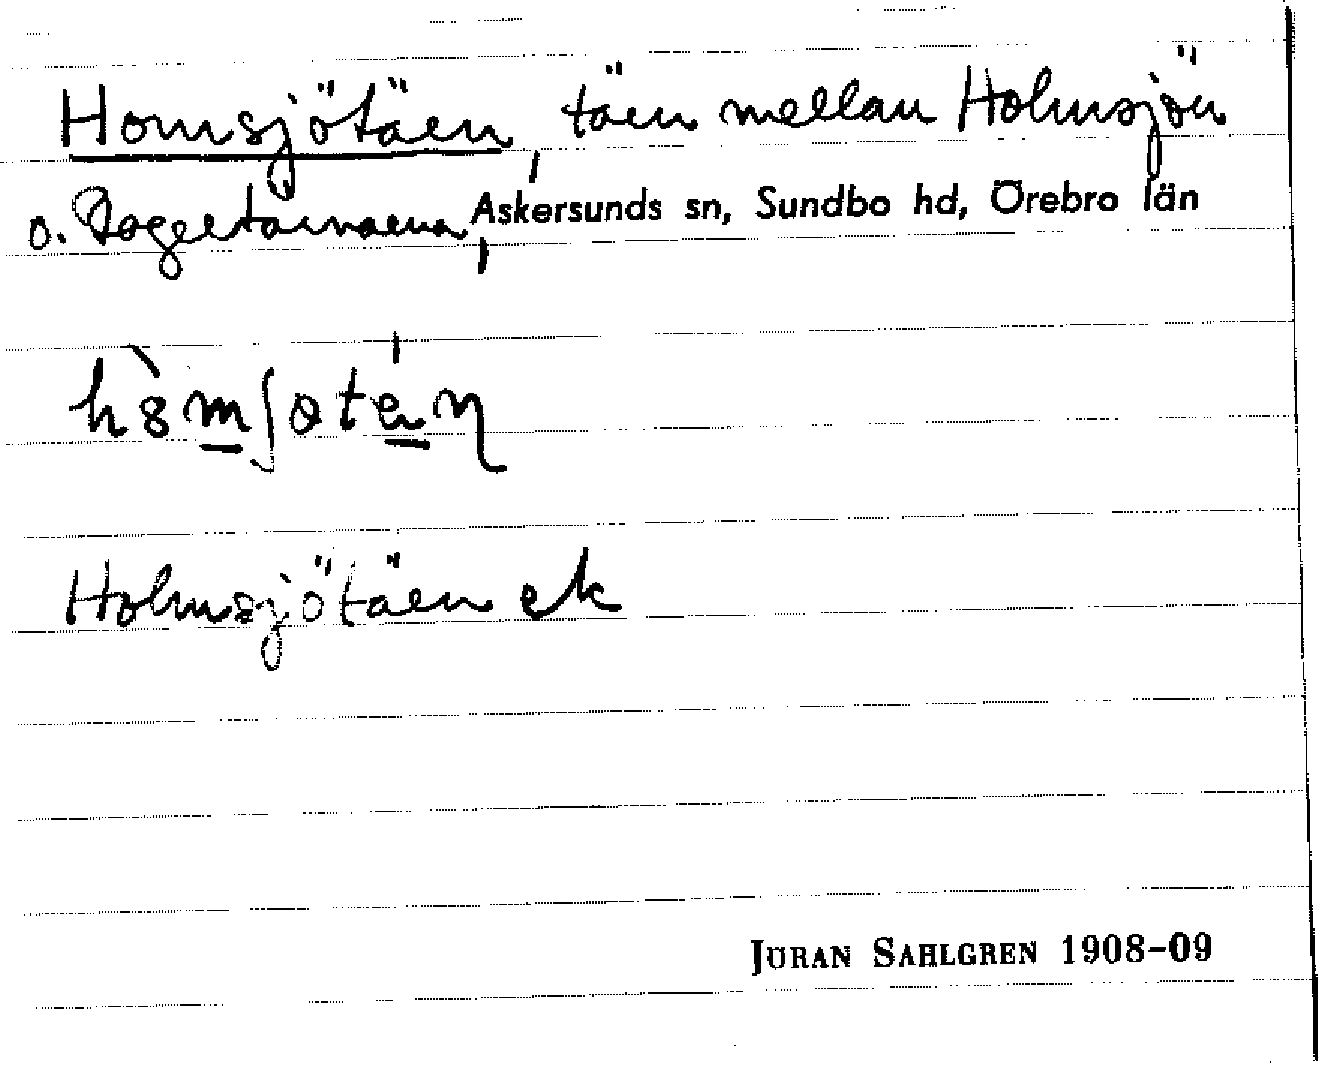 Homsjötäen, täen mellan Holmsjön
o. Doggetärnarna, Askersunds sn, Sundbo hd, Örebro län
hò̀mʃɵtén
Holmsjötäen ek
JÖRAN SAHLGREN 1908-09